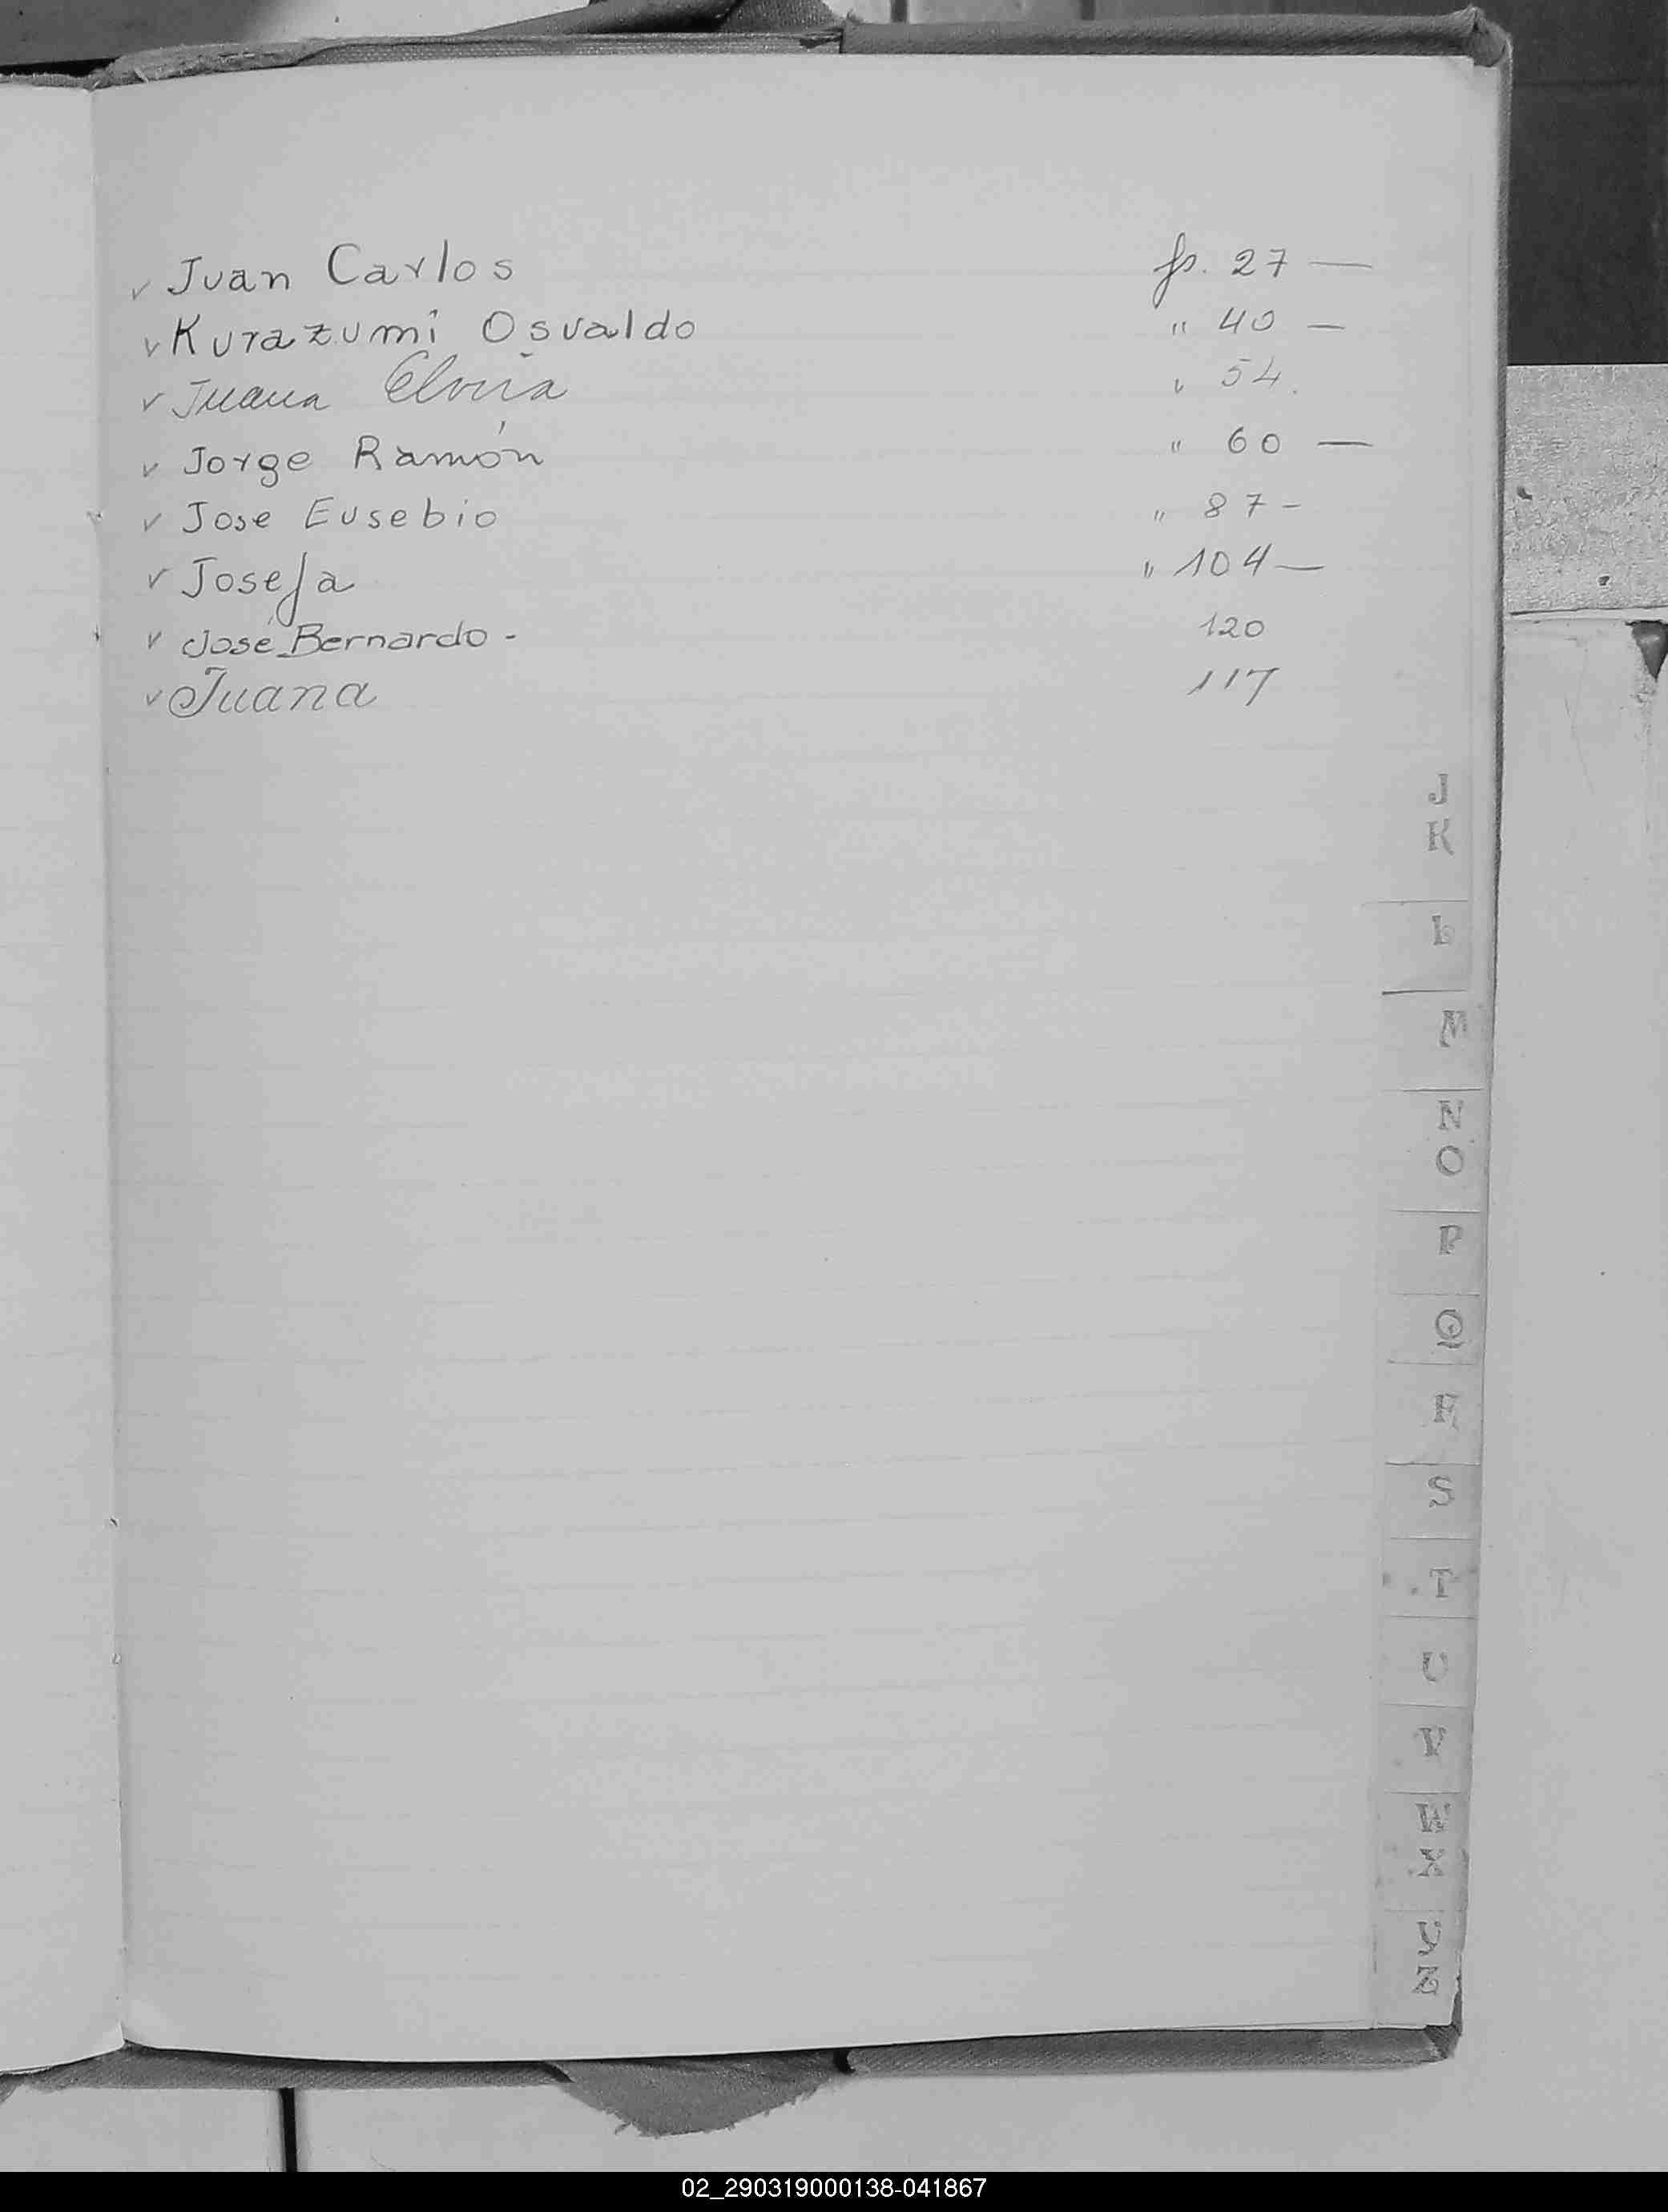 ✓ Juan Carlos fs. 27 —
✓ Kurazumi Osvaldo " 40 —
✓ Juana Elvira " 54.
✓ Jorge Ramón " 60 —
✓ Jose Eusebio " 87 -
✓ Josefa " 104 —
✓ José Bernardo - 120
✓ Juana 117
J
K
L
M
N
O
P
Q
R
S
T
U
V
W
X
Y
Z
02_290319000138-041867